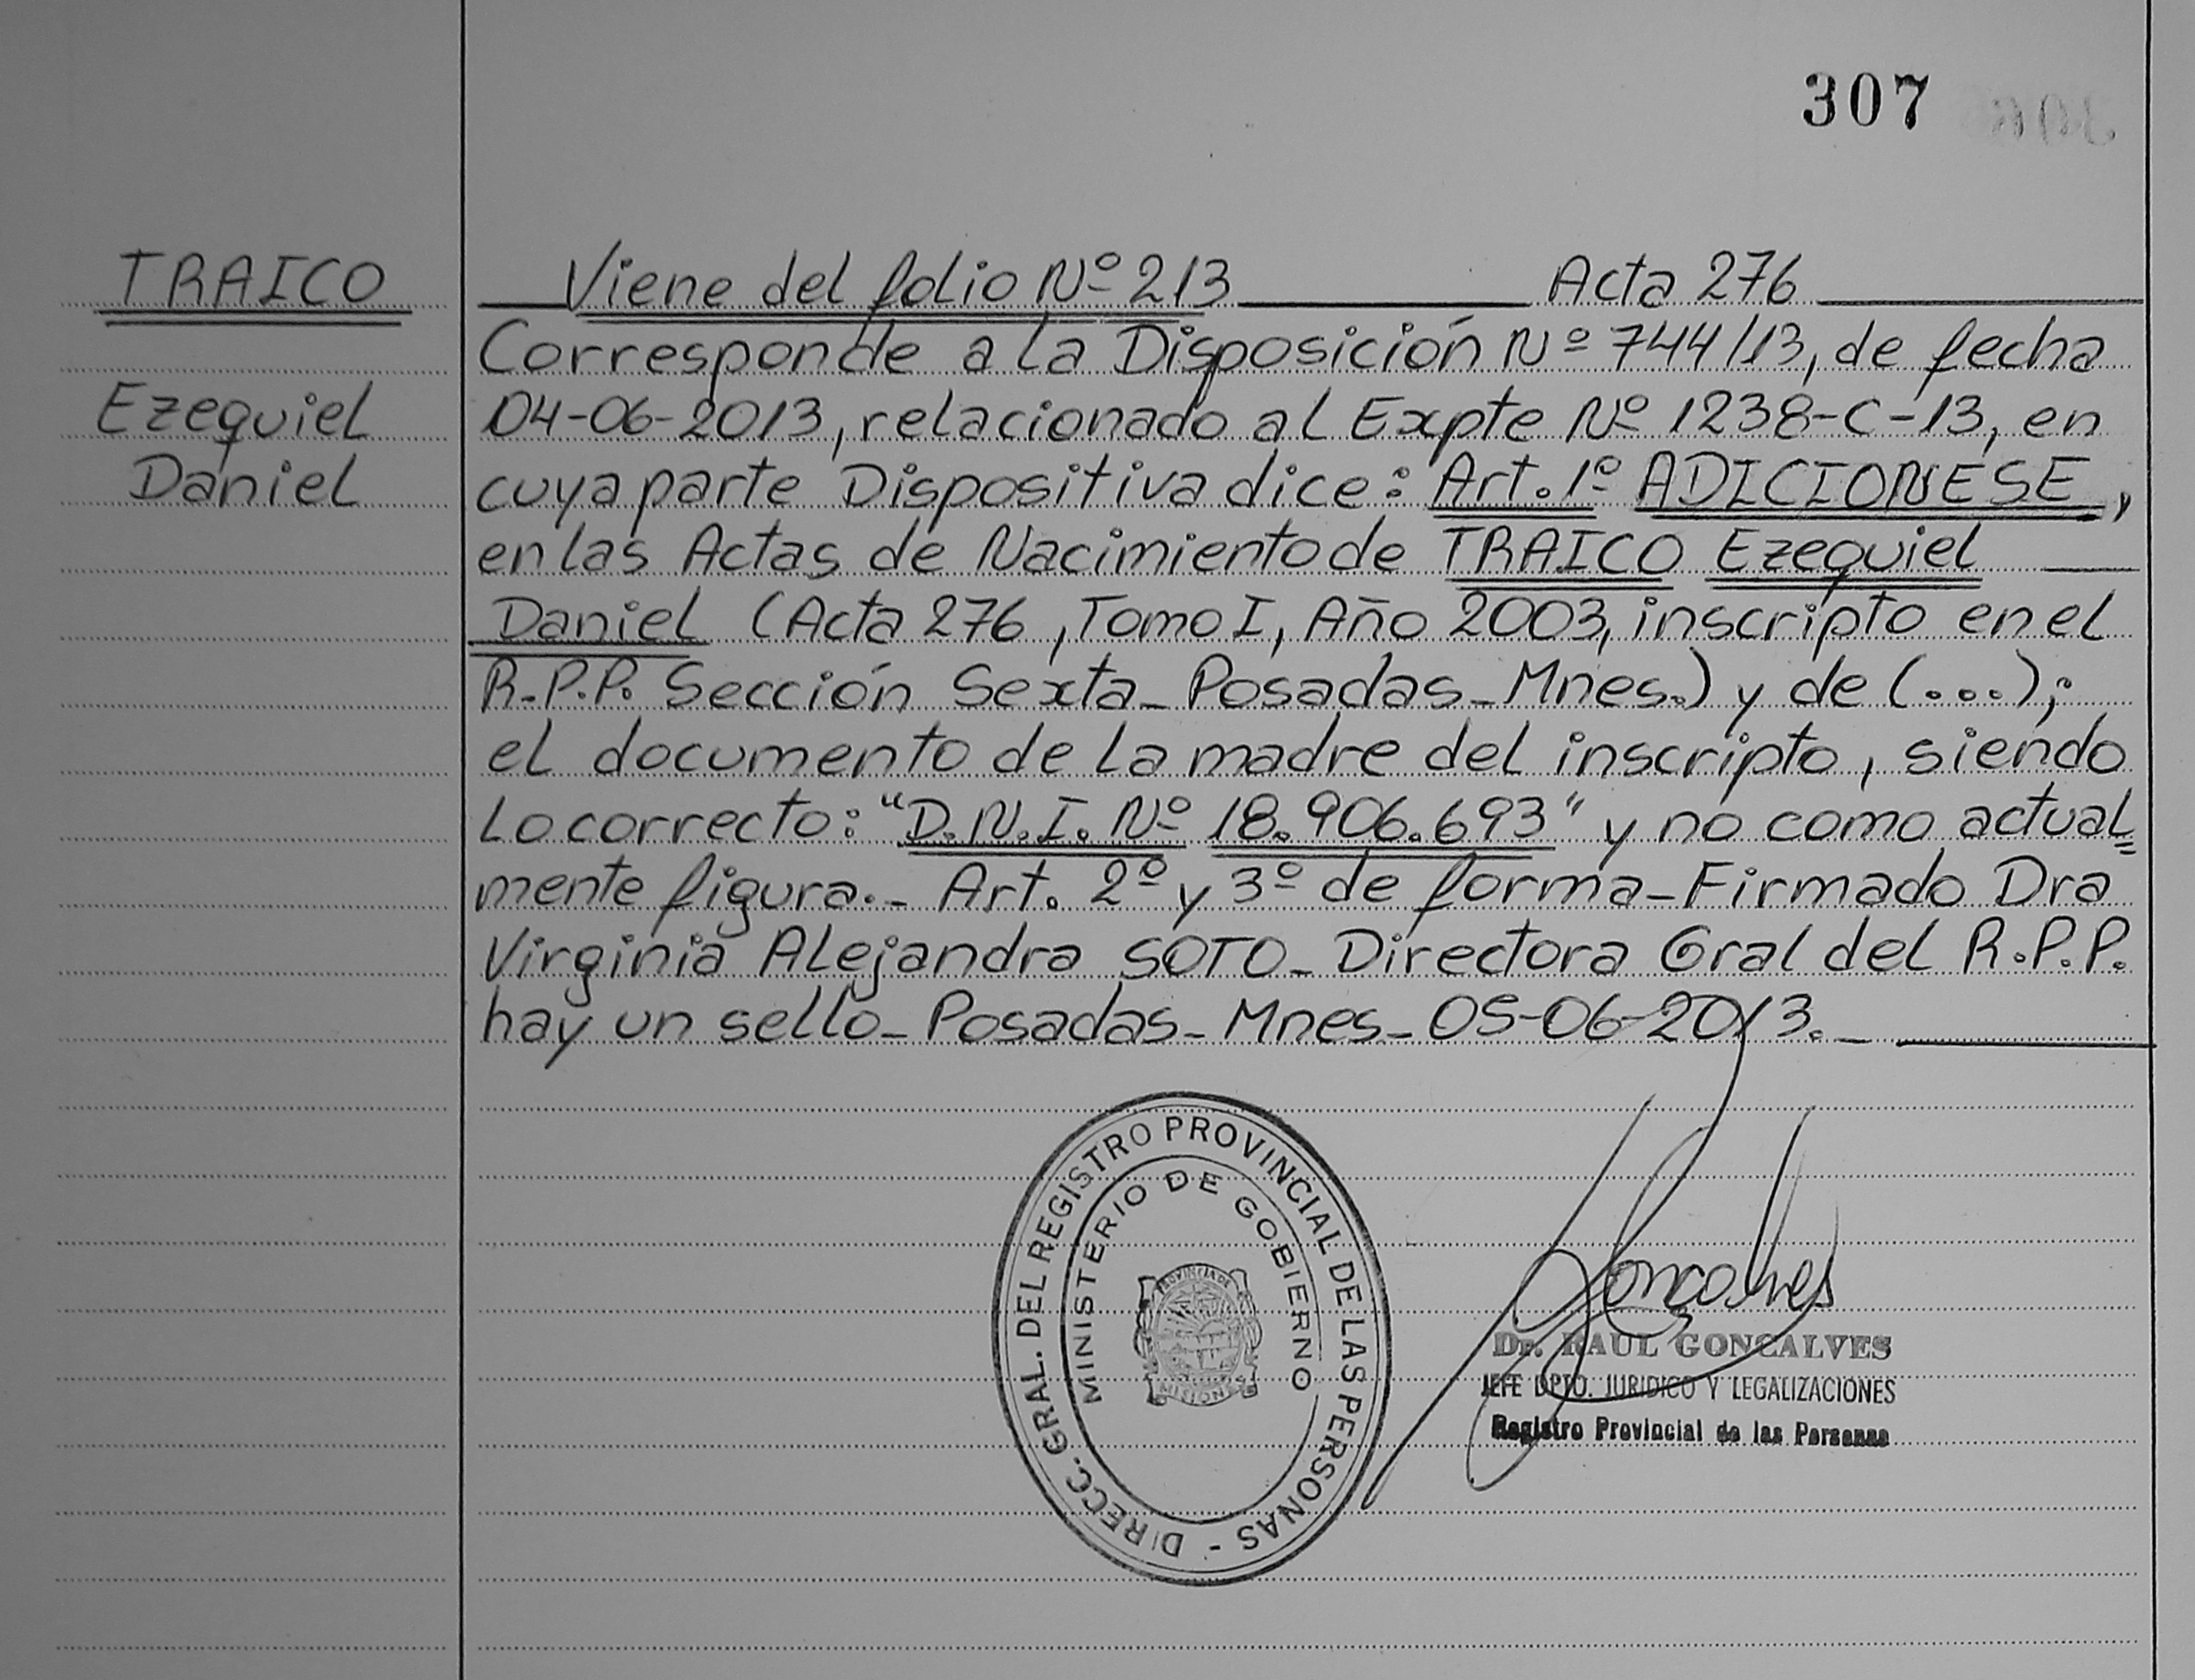 307
TRAICO
Ezequiel
Daniel
Viene del folio Nº 213 Acta 276
Corresponde a la Disposición Nº 744/13, de fecha
04-06-2013, relacionado al Expte Nº 1238-C-13, en
cuya parte Dispositiva dice: Art. 1º ADICIONESE,
en las Actas de Nacimiento de TRAICO Ezequiel
Daniel (Acta 276, Tomo I, Año 2003, inscripto en el
R.P.P. Sección Sexta_ Posadas_Mnes.) y de (...);
el documento de la madre del inscripto, siendo
lo correcto: "D.N.I. Nº 18.906.693" y no como actual=
mente figura._ Art. 2º y 3º de forma_Firmado Dra
Virginia Alejandra SOTO_ Directora Gral del R.P.P.
hay un sello_ Posadas_ Mnes_ 05-06-2013._
DIRECC. GRAL. DEL REGISTRO PROVINCIAL DE LAS PERSONAS -
MINISTERIO DE GOBIERNO
PROVINCIA DE
MISIONES
Goncalves
Dr. RAUL GONCALVES
JEFE DPTO. JURIDICO Y LEGALIZACIONES
Registro Provincial de las Personas